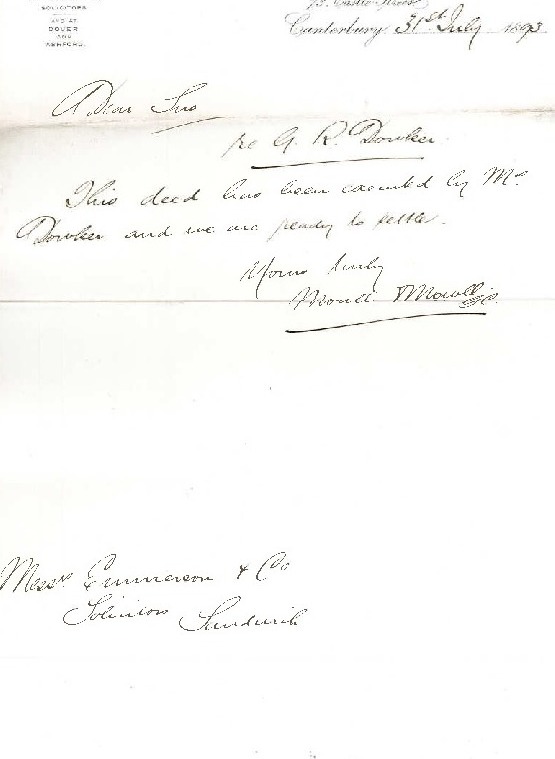 SOLICITORS
AND AT
DOVER
AND
ASHFORD.
15, Castle Street
Canterbury 31st July 1893
Dear Sirs
re G. R. Dowker.
This deed has been executed by Mr
Dowker and we are ready to settle.
Yours truly
Mowll Mowll
Messrs Emmerson & Co
Solicitors
Sandwich